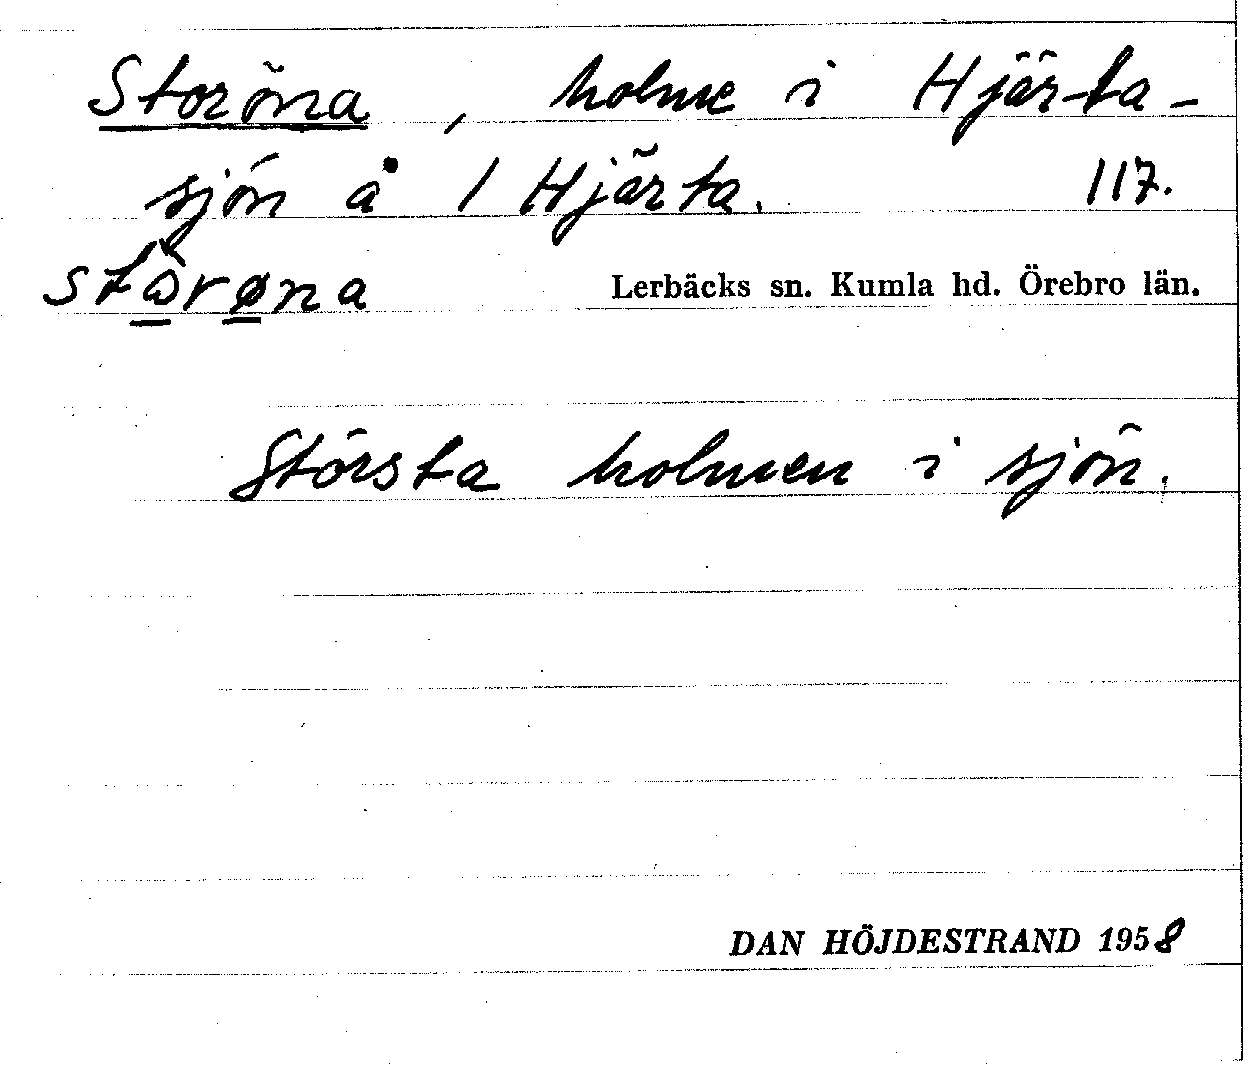 Storöna, holme i Hjärta-
sjön å 1 Hjärta. 117.
stὼ̲rø̲na Lerbäcks sn. Kumla hd. Örebro län.
Största holmen i sjön.
DAN HÖJDESTRAND 1958